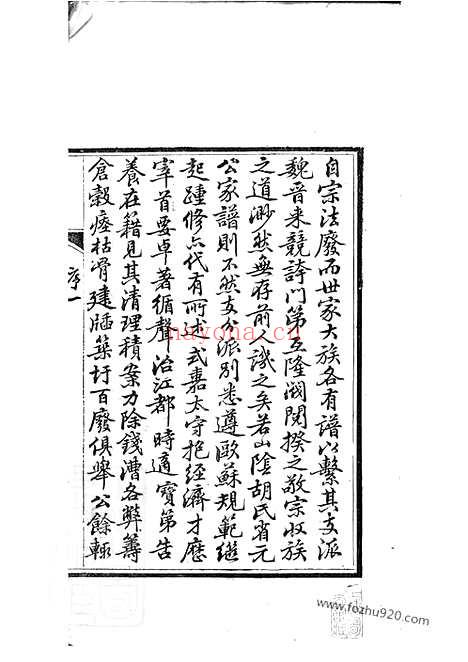 自宗法廢而世家大族各有譜以繫其支派
魏晉來競誇門第互隆閥閱揆之敬宗收族
之道渺然無存前人譏之矣若山陰胡氏省元
公家譜則不然支分派別悉遵歐蘇規範繼
起踵修六代有所述式嘉太守抱經濟才歷
宰首要卓著循聲治江都時適寶第告
養在籍見其清理積案力除錢漕各弊籌
倉穀瘞枯骨建牐築圩百廢俱舉公餘輒
序一
nayona.cn
www.fozhu920.com